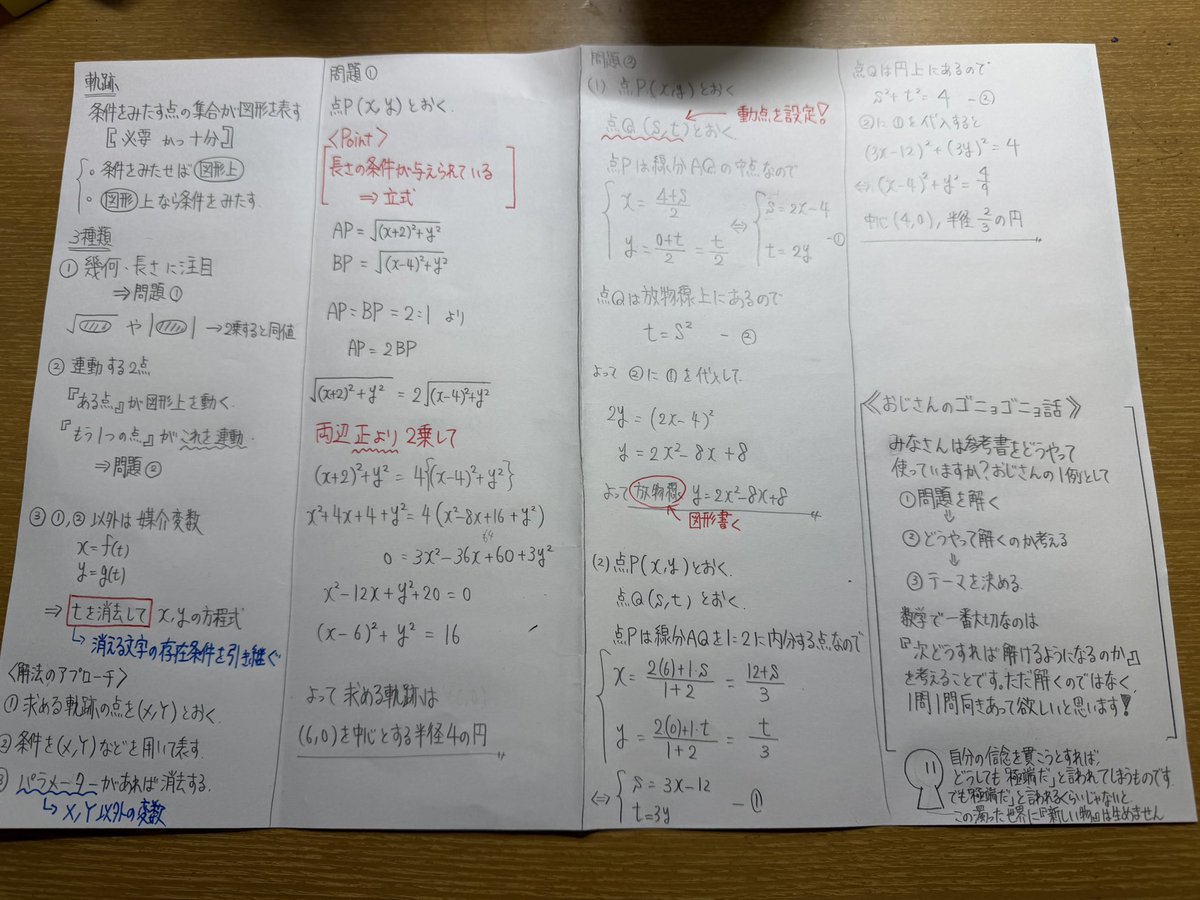 軌跡
条件をみたす点の集合が図形を表す
『必要 かつ 十分』
・条件をみたせば 図形上
・図形上なら条件をみたす.
3種類
① 幾何、長さに注目
⇒問題①
√ や | | →2乗すると同値
② 連動する2点
『ある点』が図形上を動く.
『もう1つの点』がこれを連動.
⇒問題②
③ ①,② 以外は 媒介変数
x=f(t)
y=g(t)
⇒ tを消去して x,yの方程式
↳ 消える文字の存在条件を引き継ぐ
〈解法のアプローチ〉
① 求める軌跡の点を(X,Y)とおく.
② 条件を(X,Y)などを用いて表す.
③ パラメーターがあれば 消去する.
↳ X,Y以外の変数
問題①
点P(x,y)とおく.
〈Point〉
長さの条件が与えられている
⇒ 立式
AP=√(x+2)²+y²
BP=√(x-4)²+y²
AP=BP=2:1 より
AP=2BP
√(x+2)²+y² = 2√(x-4)²+y²
両辺正より 2乗して
(x+2)²+y² = 4{(x-4)²+y²}
x²+4x+4+y² = 4(x²-8x+16+y²)
64
0 = 3x²-36x+60+3y²
x²-12x+y²+20=0
(x-6)²+y²=16
よって 求める軌跡は
(6,0)を中心とする半径4の円
問題②
(1) 点P(x,y)とおく
点Q(s,t)とおく ← 動点を設定!
点Pは線分AQの中点なので
x = 4+s/2 ⇔ s=2x-4
y = 0+t/2 = t/2 t=2y -①
点Qは放物線上にあるので
t=s² -②
よって ②に①を代入して.
2y=(2x-4)²
y=2x²-8x+8
よって 放物線 y=2x²-8x+8
図形書く
(2) 点P(x,y)とおく.
点Q(s,t)とおく.
点Pは線分AQを1:2に内分する点なので
x = 2(6)+1・s/1+2 = 12+s/3
y = 2(0)+1・t/1+2 = t/3
⇔ s=3x-12
t=3y -①
点Qは円上にあるので
s²+t²=4 -②
②に①を代入すると
(3x-12)²+(3y)²=4
⇔(x-4)²+y²=4/9
中心(4,0),半径2/3の円
《おじさんのゴニョゴニョ話》
みなさんは参考書をどうやって
使っていますか?おじさんの1例として
①問題を解く
⇓
②どうやって解くのか考える
⇓
③テーマを決める.
数学で一番大切なのは
『次どうすれば解けるようになるのか』
を考えることです。ただ解くのではなく、
1問1問向きあって欲しいと思います!
自分の信念を貫こうとすれば、
どうしても「極端だ」と言われてしまうものです.
でも「極端だ」と言われるくらいじゃないと、
この濁った世界に『新しい物』は生めません